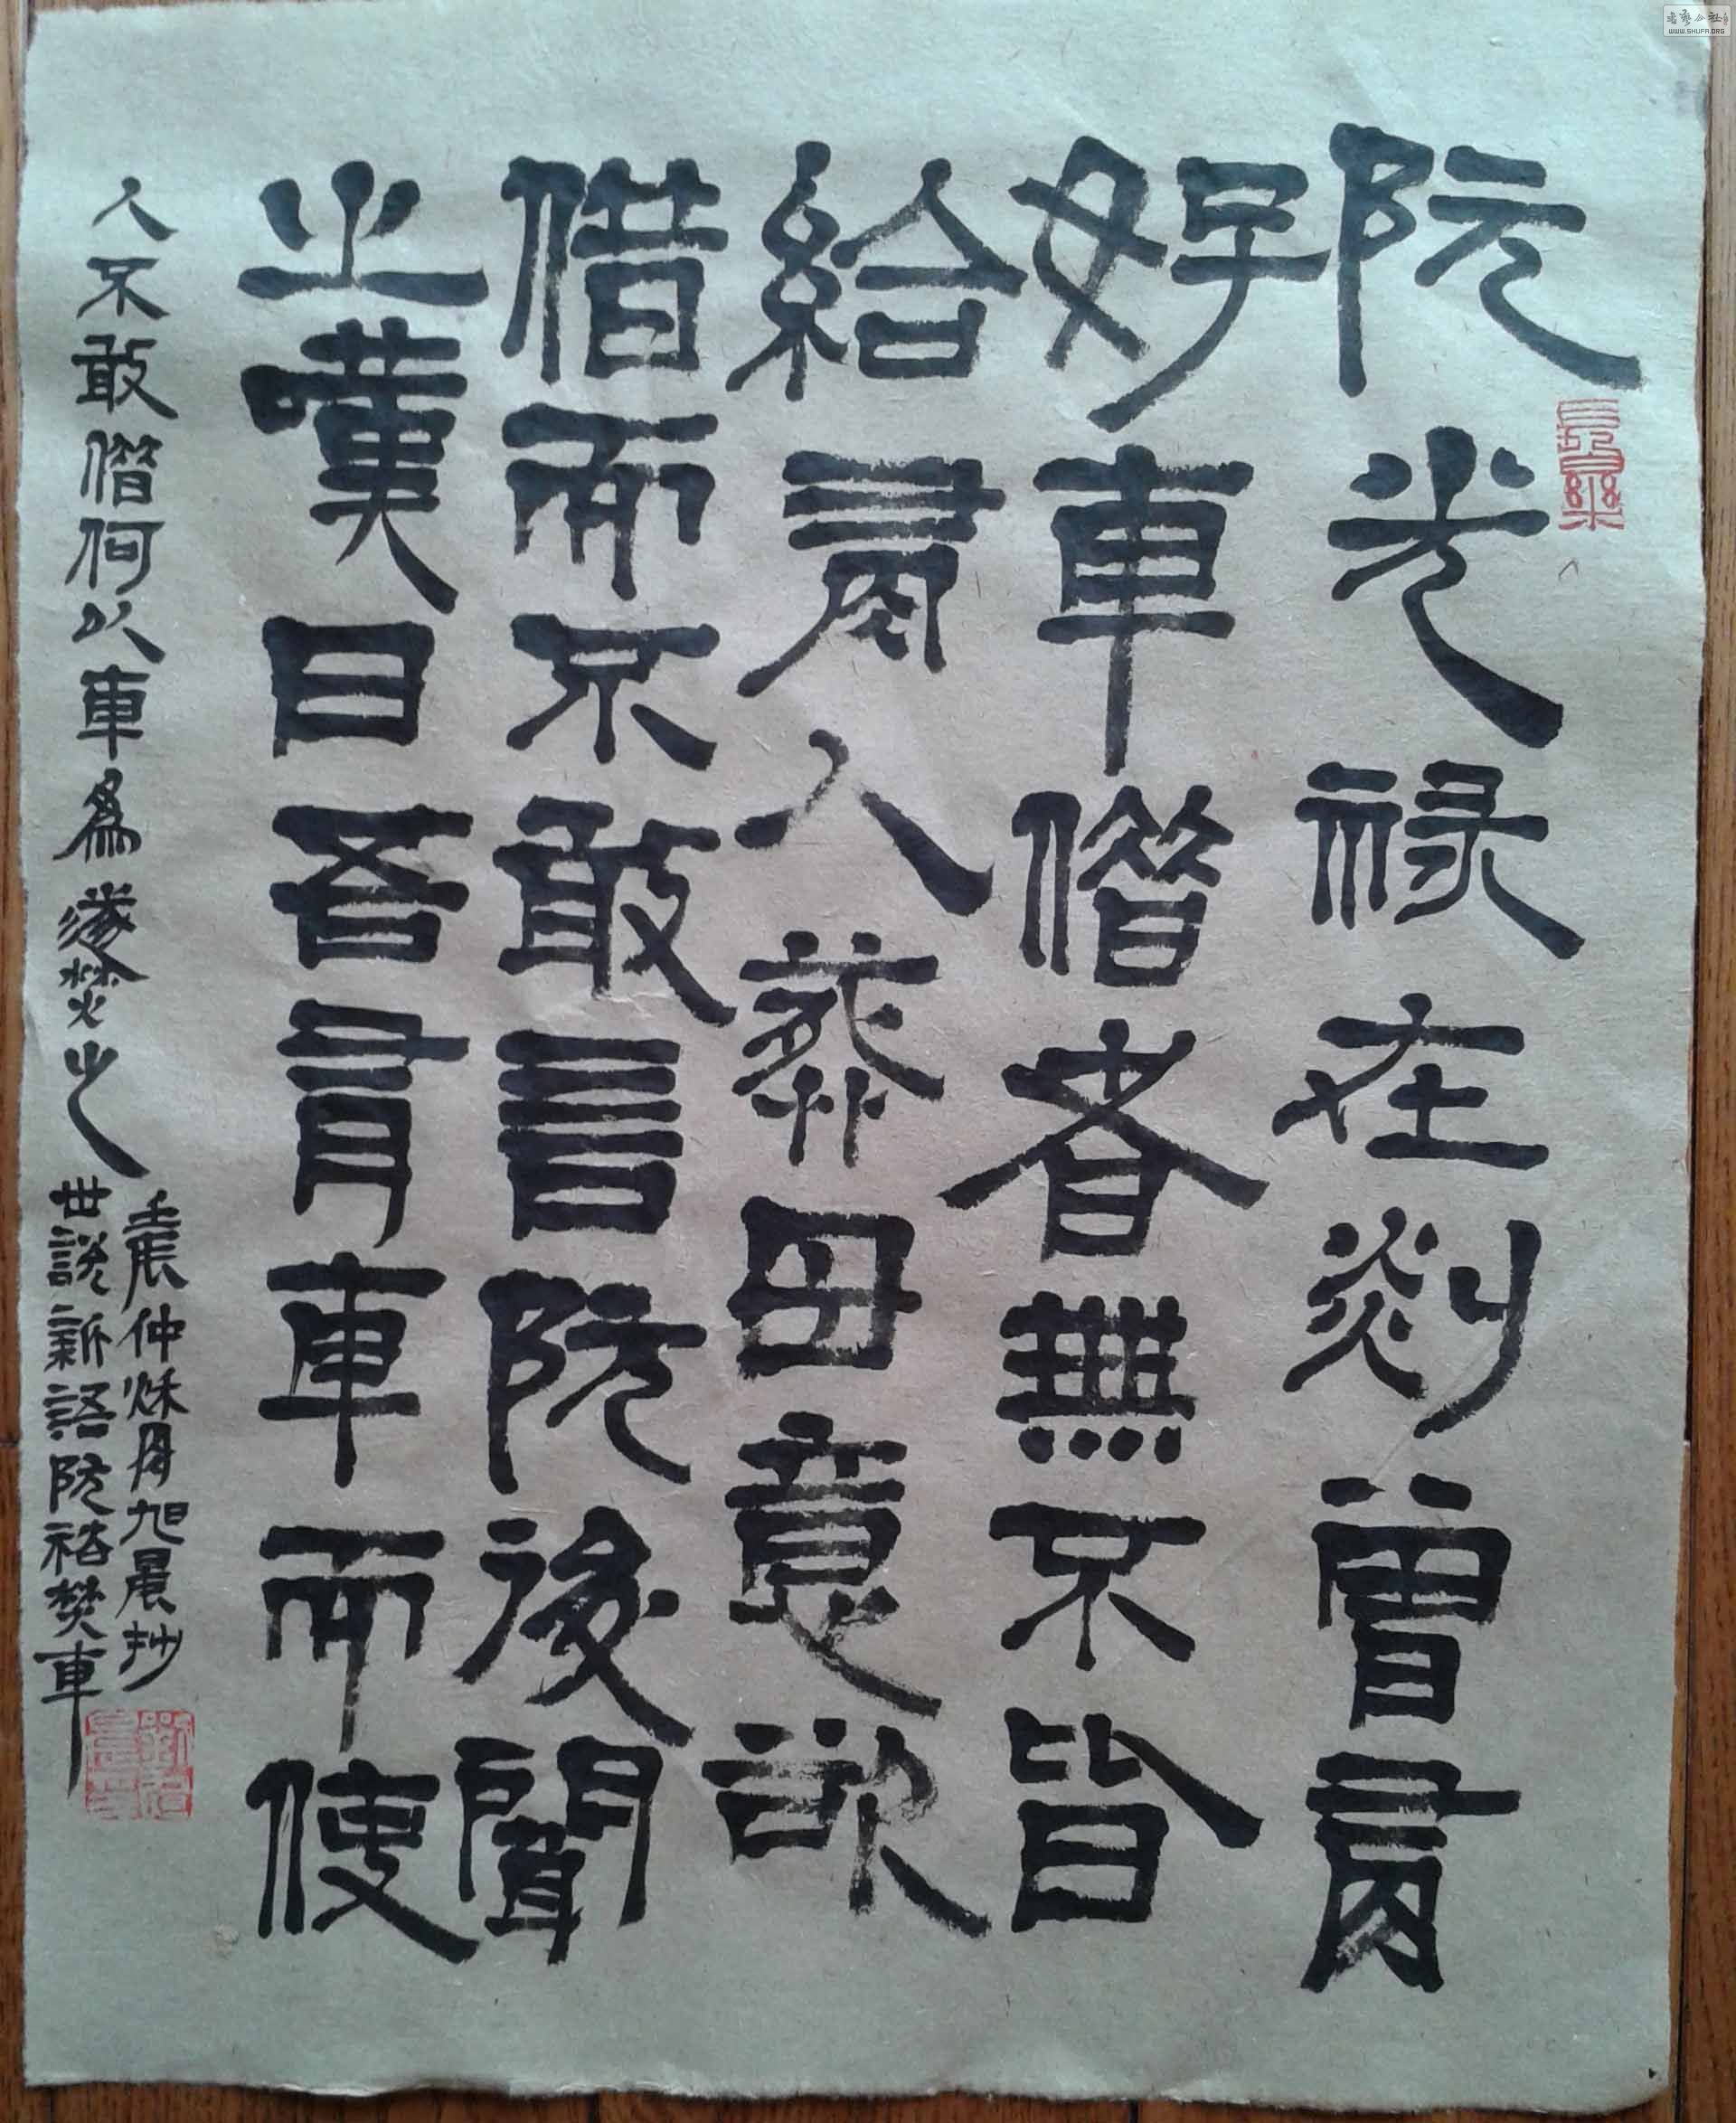 阮光祿在剡曾有
好車借者無不皆
給有人葬母意欲
借而不敢言阮後聞
之嘆曰吾有車而使
人不敢借何以車爲遂焚之
壬辰仲秋月旭晨抄
世説新語阮裕焚車
WWW.SHUFA.ORG